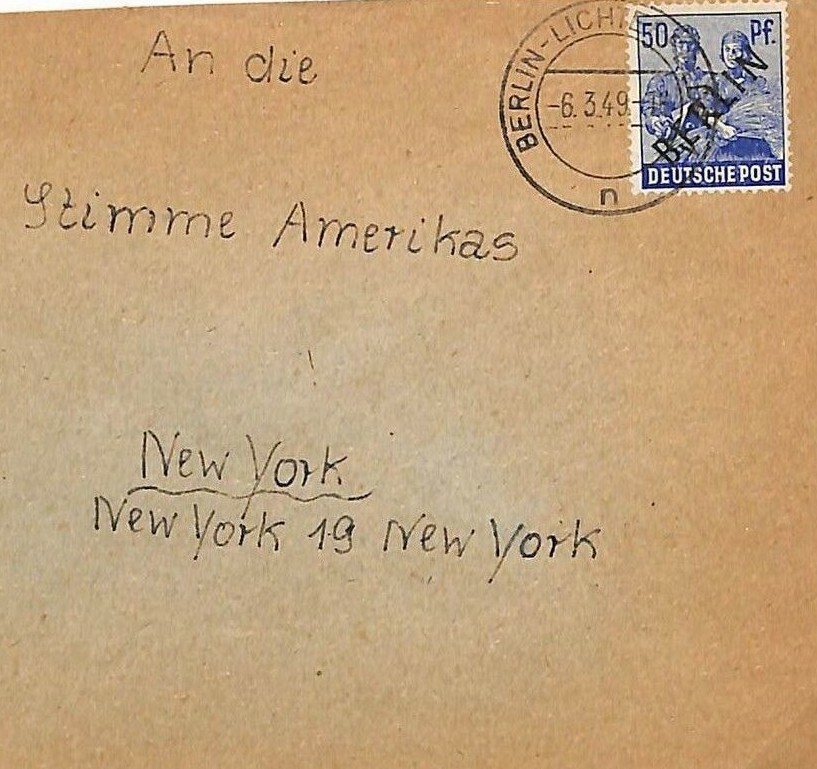 An die
50 Pf.
BERLIN
DEUTSCHE POST
-6.3.49.-
n
Stimme Amerikas
New York
New York 19 New York